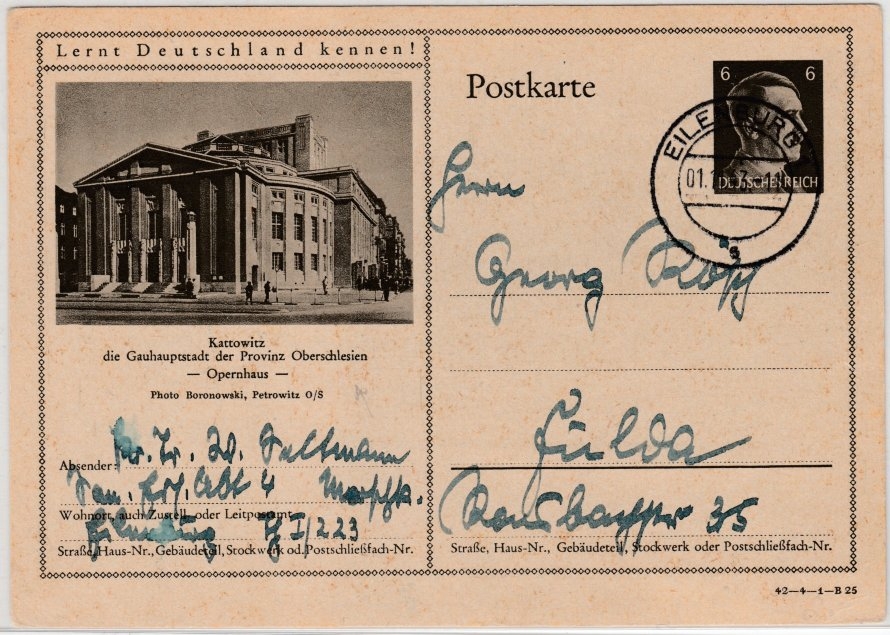 Lernt Deutschland kennen!
Kattowitz
die Gauhauptstadt der Provinz Oberschlesien
— Opernhaus —
Photo Boronowski, Petrowitz O/S
Absender:
W. Saltmann
San. Abt 4
Wohnort, auch Zustell- oder Leitpostamt
Eilenburg I/223
Straße, Haus-Nr., Gebäudeteil, Stockwerk od. Postschließfach-Nr.
Postkarte
6 6
DEUTSCHES REICH
EILENBURG
01.
s
Herrn
Georg
Fulda
35
Straße, Haus-Nr., Gebäudeteil, Stockwerk oder Postschließfach-Nr.
42—4—1—B 25